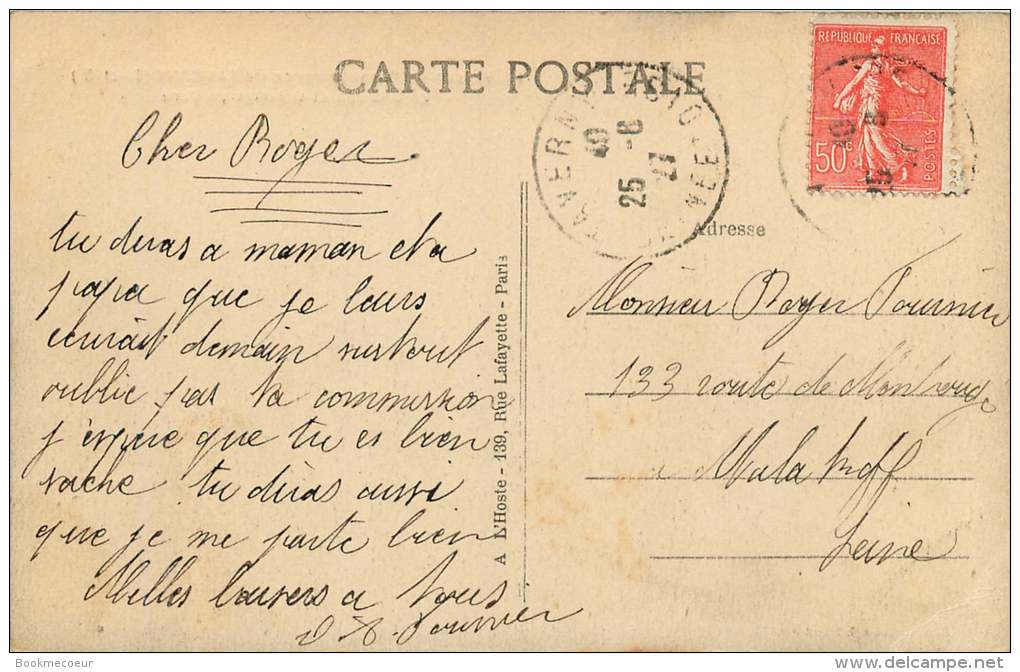 CARTE POSTALE
Cher Roger
tu diras a maman et a
papa que je leurs
ecurait demain surtout
oublie pas ta commission
j'espere que tu es bien
sache tu diras aussi
que je me porte bien
Milles baisers a Tous
Fournier
A L'Hoste - 139, Rue Lafayette - Paris
TAVERNY
25 -6
27
REPUBLIQUE FRANÇAISE
50c
POSTES
Adresse
Monsieur Roger Fournier
133 route de Montrouge
a Malakoff
Seine
Bookmecoeur
delcampe.net